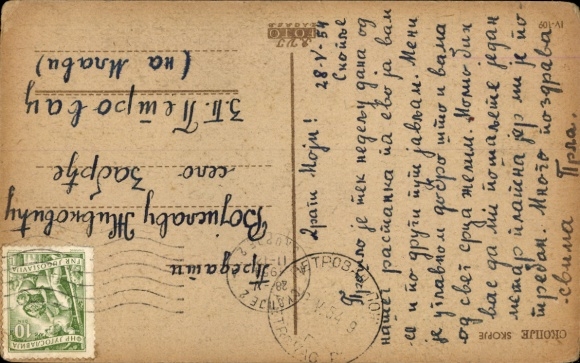 28-V-54
Скопље
Драги Моји!
Прошло је тек недељу дана од
нашег растанка па ево ја вам
се и по други пут јављам. Мени
је углавном добро што и вама
од свег срца желим. Молио бих
вас да ми пошаљете један
метар платна јер ми је по-
требан. Много поздрава
свима Прља.
Предати
Војиславу Живковићу
село Забрђе
З.П. Петровац
(на Млави)
FOTO
ZAGREB
IV-109
СКОПЈЕ SKOPJE
ФНР ЈУГОСЛАВИЈА
FNR JUGOSLAVIJA
10